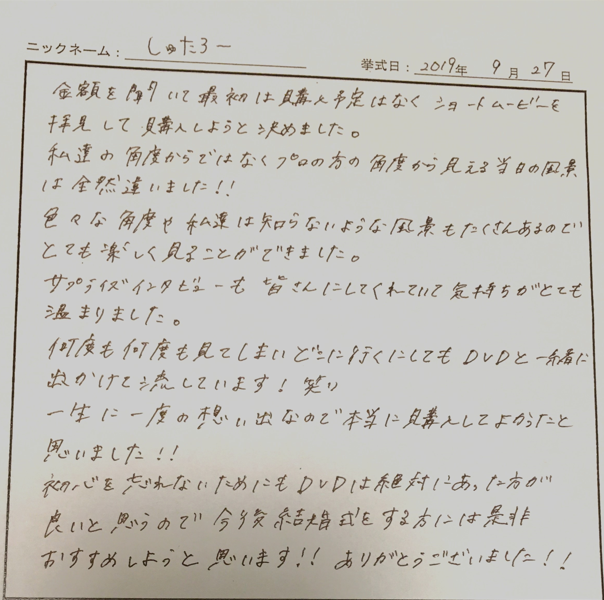 ニックネーム: しゅたろー
挙式日: 2019年 9月 27日
金額を聞いて最初は購入予定はなくショートムービーを
拝見して購入しようと決めました。
私達の角度からではなくプロの方の角度から見える当日の風景
は全然違いました!!
色々な角度や私達は知らないような風景もたくさんあるので
とても楽しく見ることができました。
サプライズインタビューも皆さんにしてくれていて気持ちがとても
温まりました。
何度も何度も見てしまいどこに行くにしてもDVDと一緒に
出かけて流しています!笑い
一生に一度の想い出なので本当に購入してよかったと
思いました!!
初心を忘れないためにもDVDは絶対にあった方が
良いと思うので今後結婚式をする方には是非
おすすめしようと思います!!ありがとうございました!!